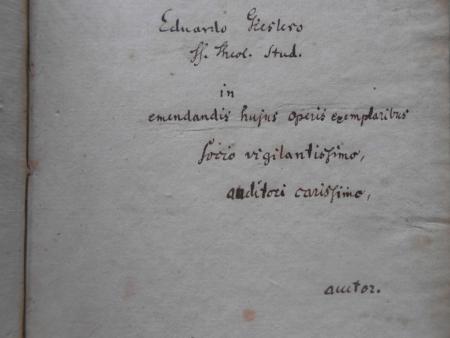 Eduardo
ff. Theol. Stud.
in
emendandis hujus operis exemplaribus
socio vigilantissimo,
auditori carissimo,
auctor.